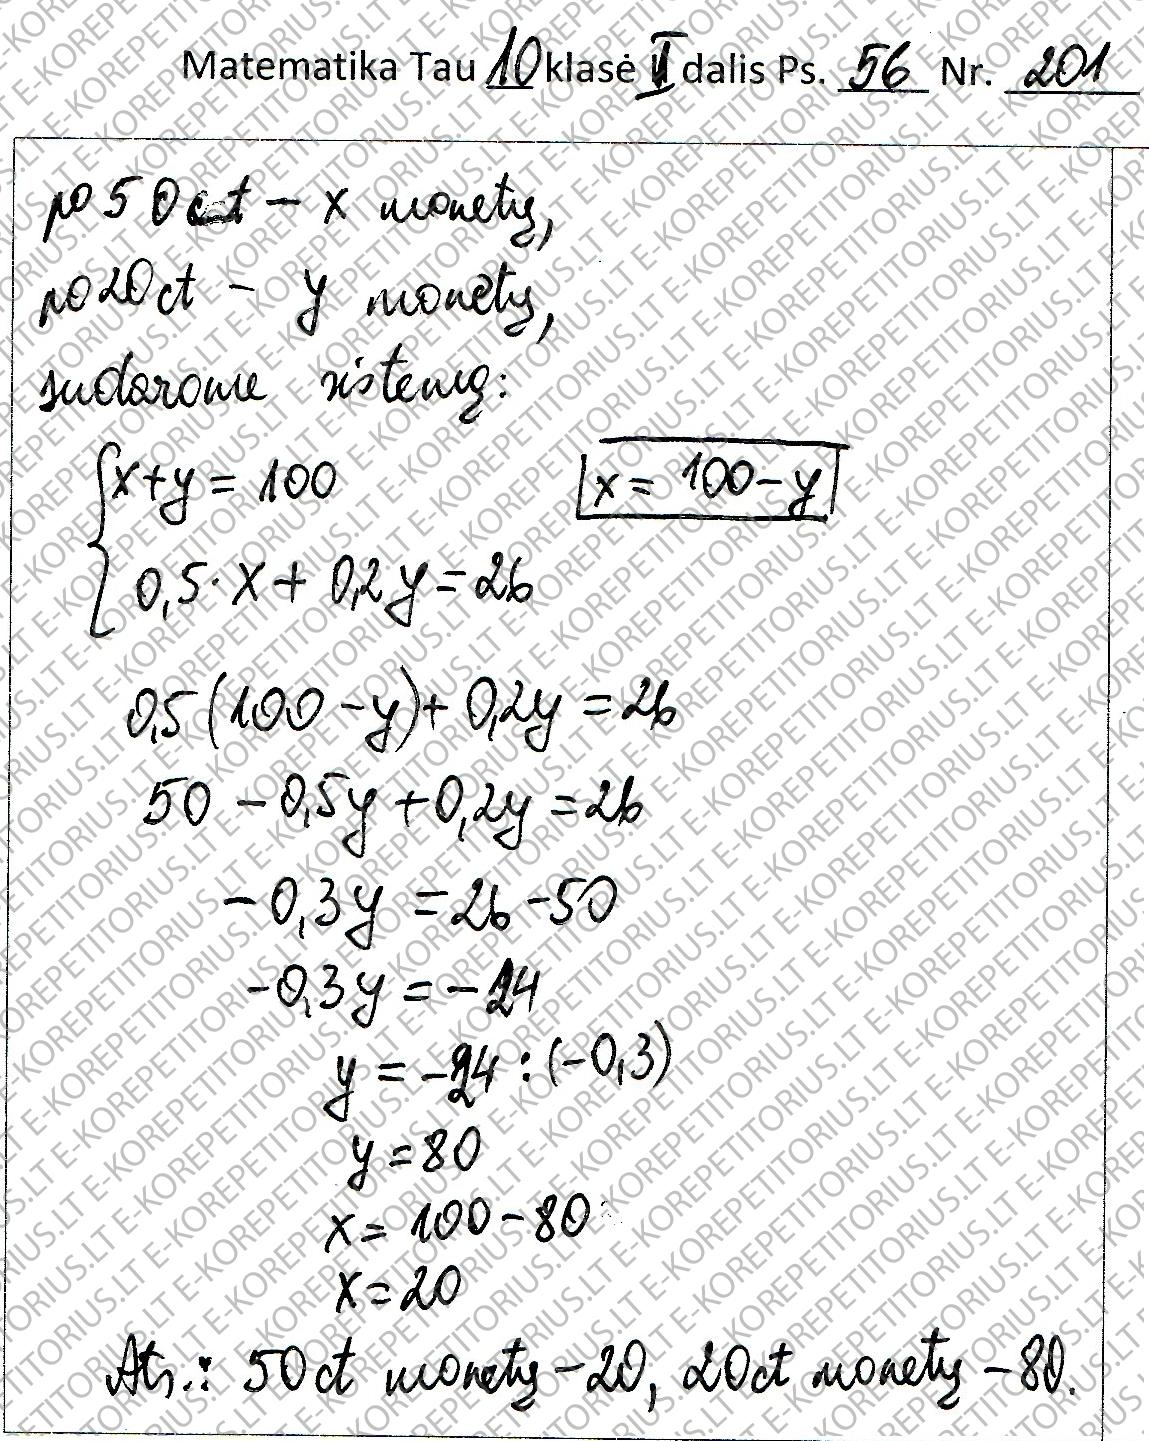 Matematika Tau 10 klasė II dalis Ps. 56 Nr. 201
po 50 ct – x monetų,
po 20 ct – y monetų,
sudarome sistemą:
x + y = 100
x = 100 - y
0,5 · x + 0,2y = 26
0,5(100 - y) + 0,2y = 26
50 - 0,5y + 0,2y = 26
-0,3y = 26 - 50
-0,3y = -24
y = -24 : (-0,3)
y = 80
x = 100 - 80
x = 20
Ats.: 50 ct monetų – 20, 20 ct monetų – 80.
E-KOREPETITORIUS.LT